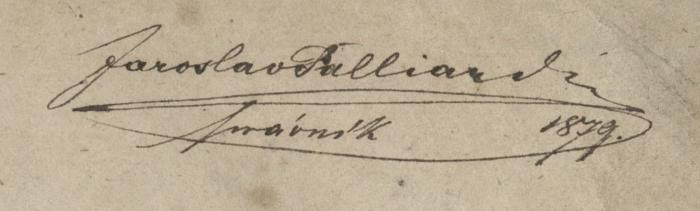 Jaroslav Palliardi
právník 1879.